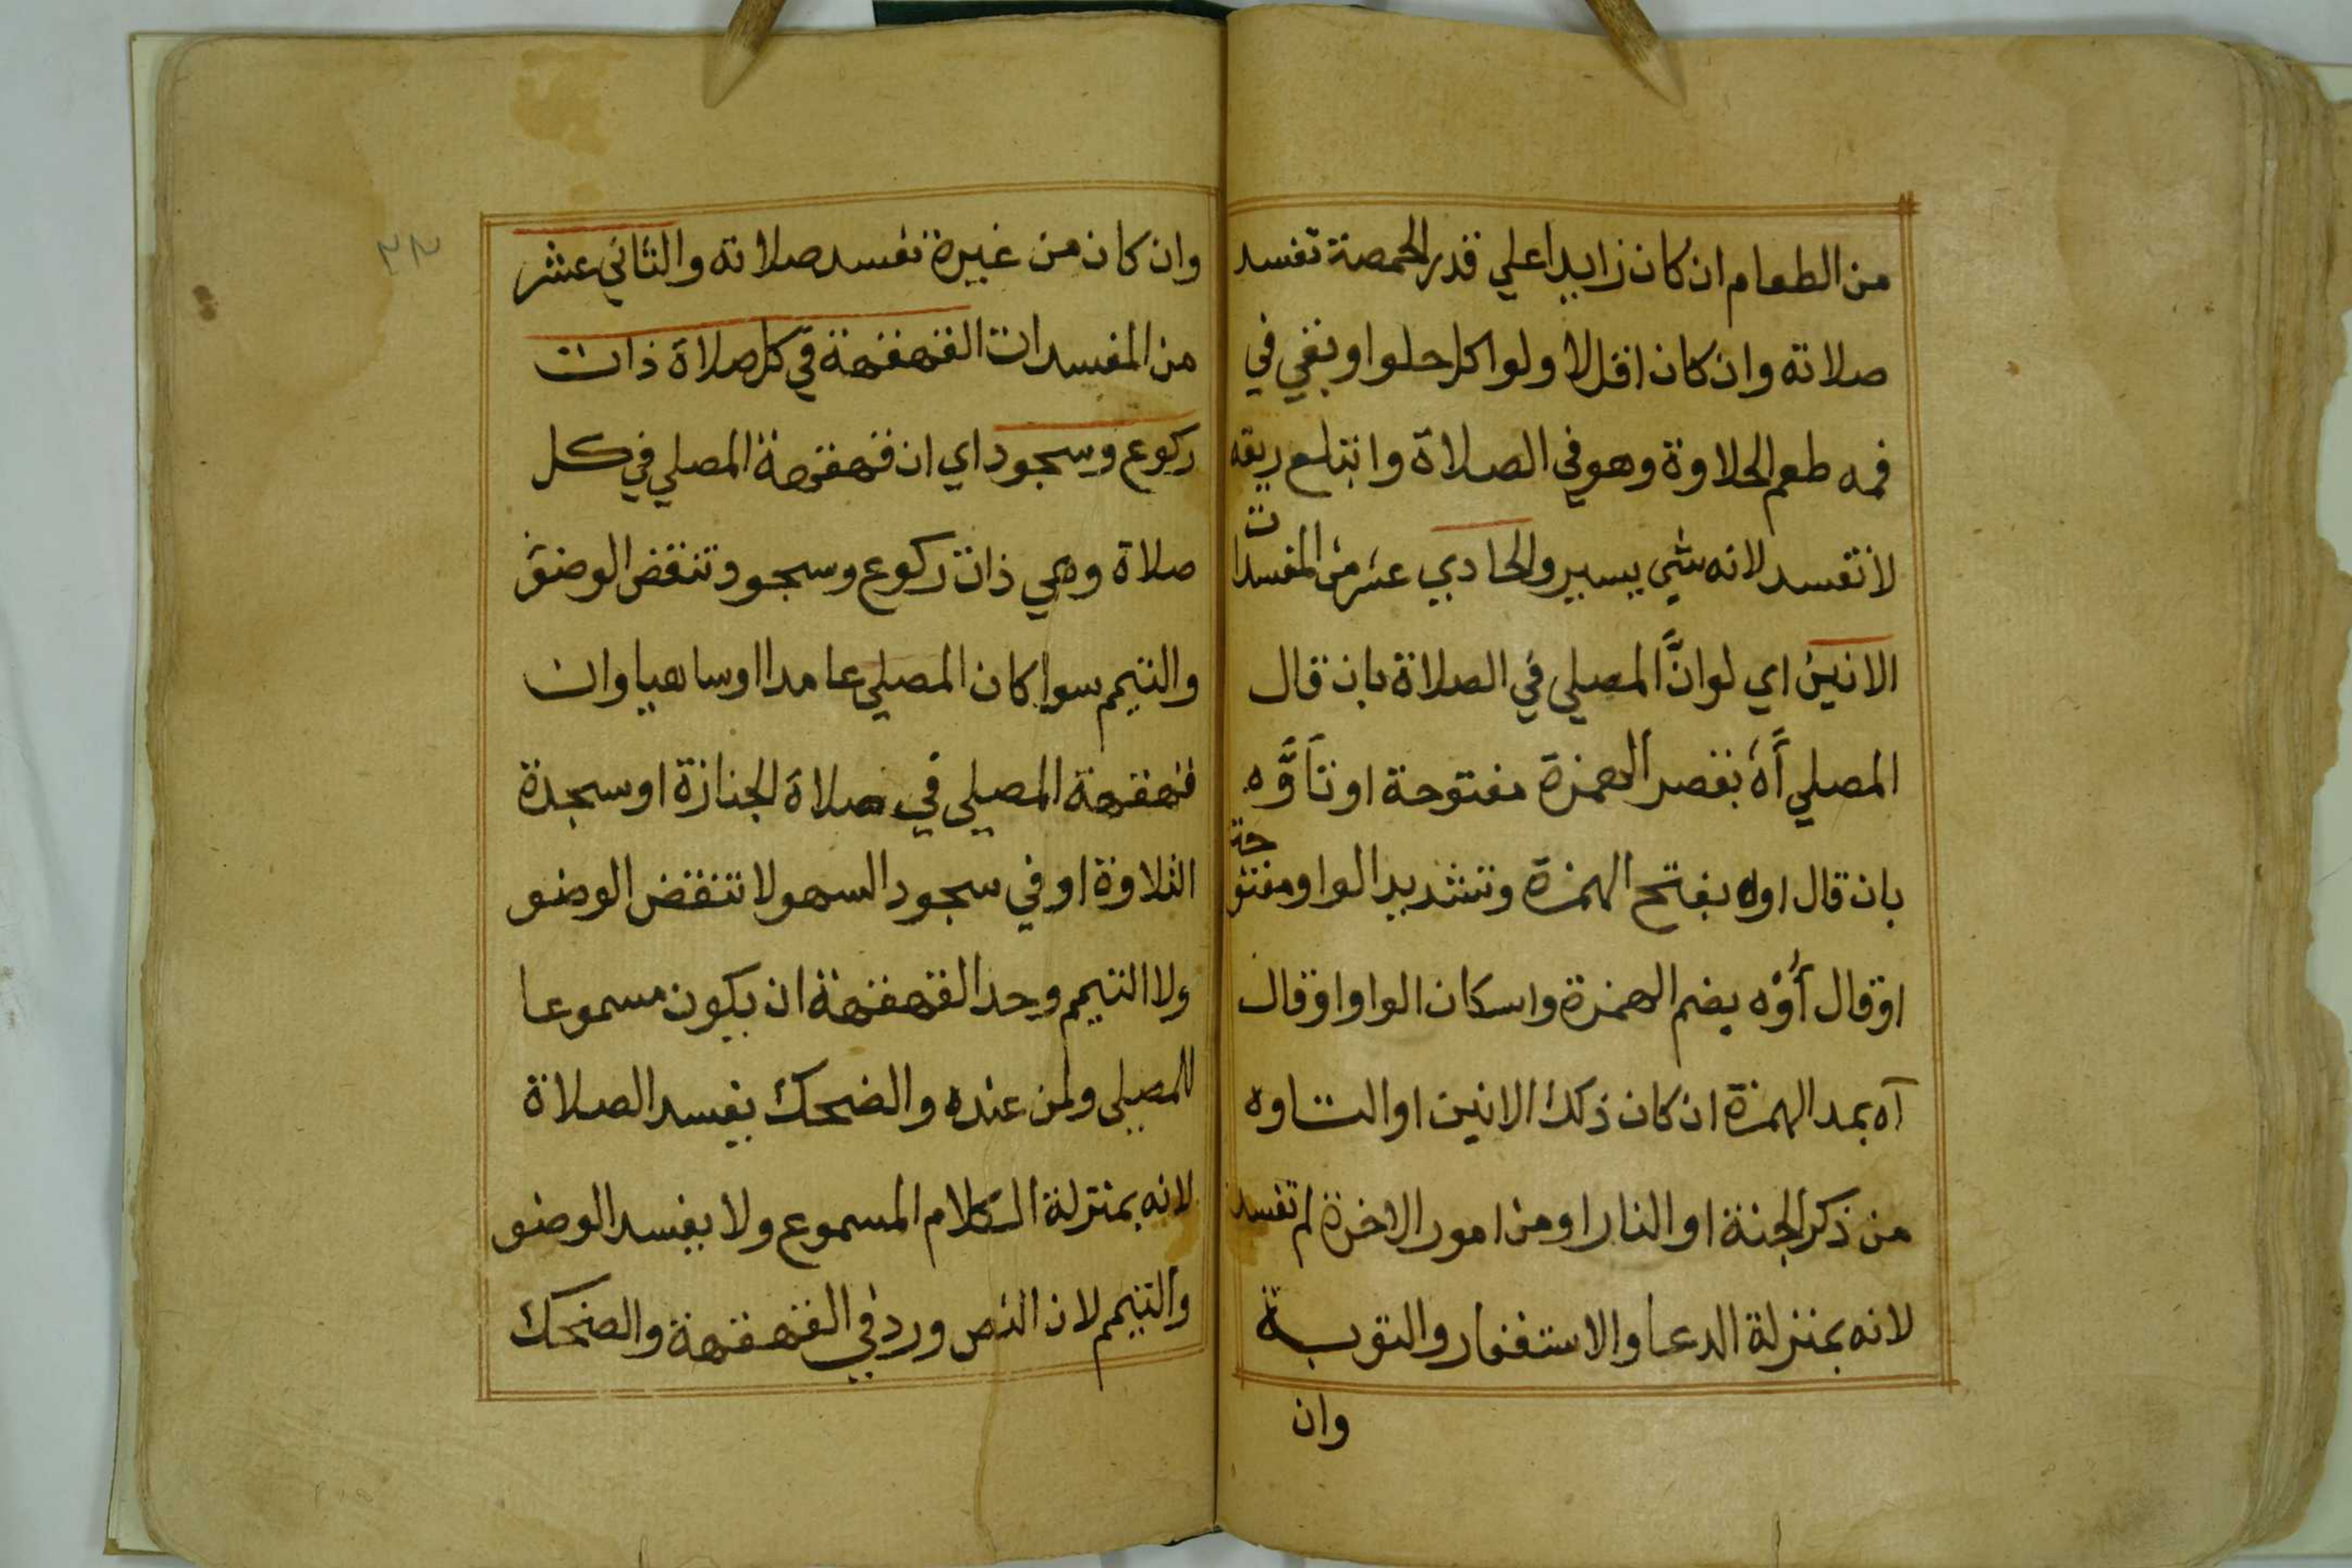 من الطعام ان كان زايدا علي قدر الحمصة تفسد
صلاته وان كان اقل لا ولو اكل حلوا وبقي في
فمه طعم الحلاوة وهو في الصلاة وابتلع ريقه
لا تفسد لانه شي يسير والحادي عشر من المفسدات
الانين اي لو انَّ المصلي في الصلاة بان قال
المصلي أَهْ بقصر الهمزة مفتوحة او تَأَوَّه
بان قال اوه بفتح الهمزة وتشديد الواو مفتوحة
او قال أُوْه بضم الهمزة واسكان الواو او قال
آه بمد الهمزة ان كان ذلك الانين او التاوه
من ذكر الجنة او النار او من امور الاخرة لم تفسد
لانه بمنزلة الدعا والاستغفار والتوبة
وان
٣٢
وان كان من غيره تفسد صلاته والثاني عشر
من المفسدات القهقهة في كل صلاة ذات
ركوع وسجود اي ان قهقهة المصلي في كل
صلاة وهي ذات ركوع وسجود تنقض الوضؤ
والتيمم سوا كان المصلي عامدا او ساهيا وان
قهقهة المصلي في صلاة الجنازة او سجدة
التلاوة او في سجود السهو لا تنقض الوضو
ولا التيمم وحد القهقهة ان يكون مسموعا
للمصلي ولمن عنده والضحك يفسد الصلاة
لانه بمنزلة الكلام المسموع ولا يفسد الوضو
والتيمم لان النص ورد في القهقهة والضحك